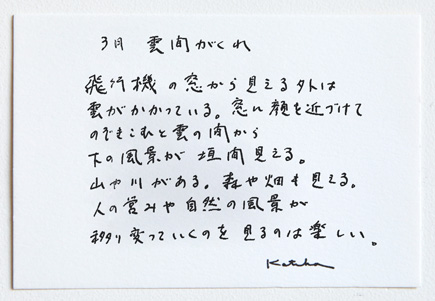 3月 雲間がくれ
飛行機の窓から見える外は
雲がかかっている。窓に顔を近づけて
のぞきこむと雲の間から
下の風景が垣間見える。
山や川がある。森や畑も見える。
人の営みや自然の風景が
移り変っていくのを見るのは楽しい。